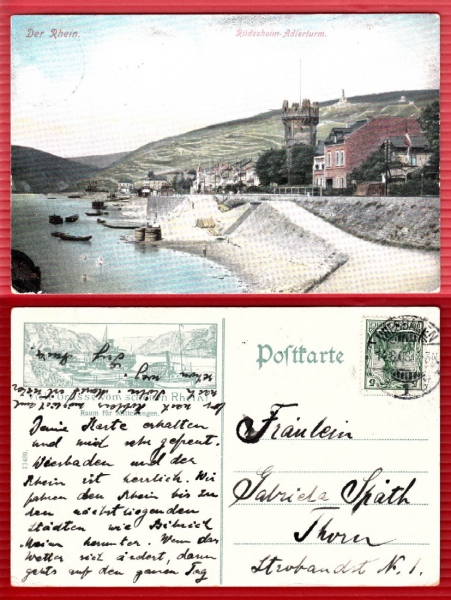 Der Rhein.
Rüdesheim-Adlerturm.
Postkarte
Raum für Mitteilungen.
Deine Karte erhalten
und mich sehr gefreut.
Wiesbaden und der
Rhein ist herrlich. Wir
fahren den Rhein bis zu
den nächstliegenden
Städten wie Biebrich
Mainz herunter. Wenn das
Wetter sich ändert, dann
gehts auf den ganzen Tag
Fräulein
Gabriela Späth
Thorn
Strobandst N. 1.